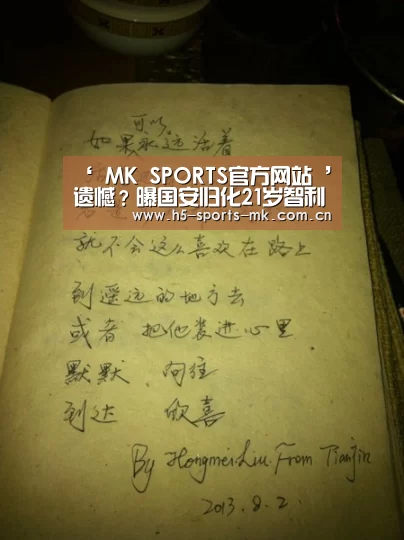 可以
如果永远活着
‘ MK SPORTS官方网站 ’
遗憾？曝国安归化21岁智利
www.h5-sports-mk.com.cn
就不会这么喜欢在路上
到遥远的地方去
或者 把他装进心里
默默 向往
到达 欣喜
By Hongmei.Liu. From Tianjin
2013.8.2.